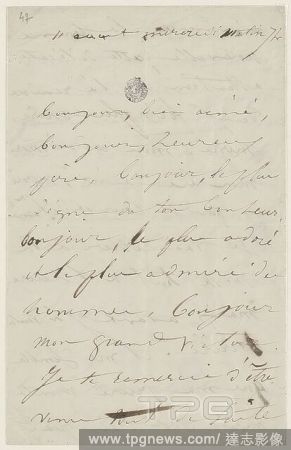 47
11 août mercredi matin 7h
Bonjour, bien aimé,
bonjour, heureux
père, bonjour, le plus
digne de ton bonheur,
bonjour, le plus adoré
et le plus admiré des
hommes, bonjour
mon grand Victor.
Je te remercie d'être
venu tout de suite
TPG
www.tpgnews.com/ 達志影像